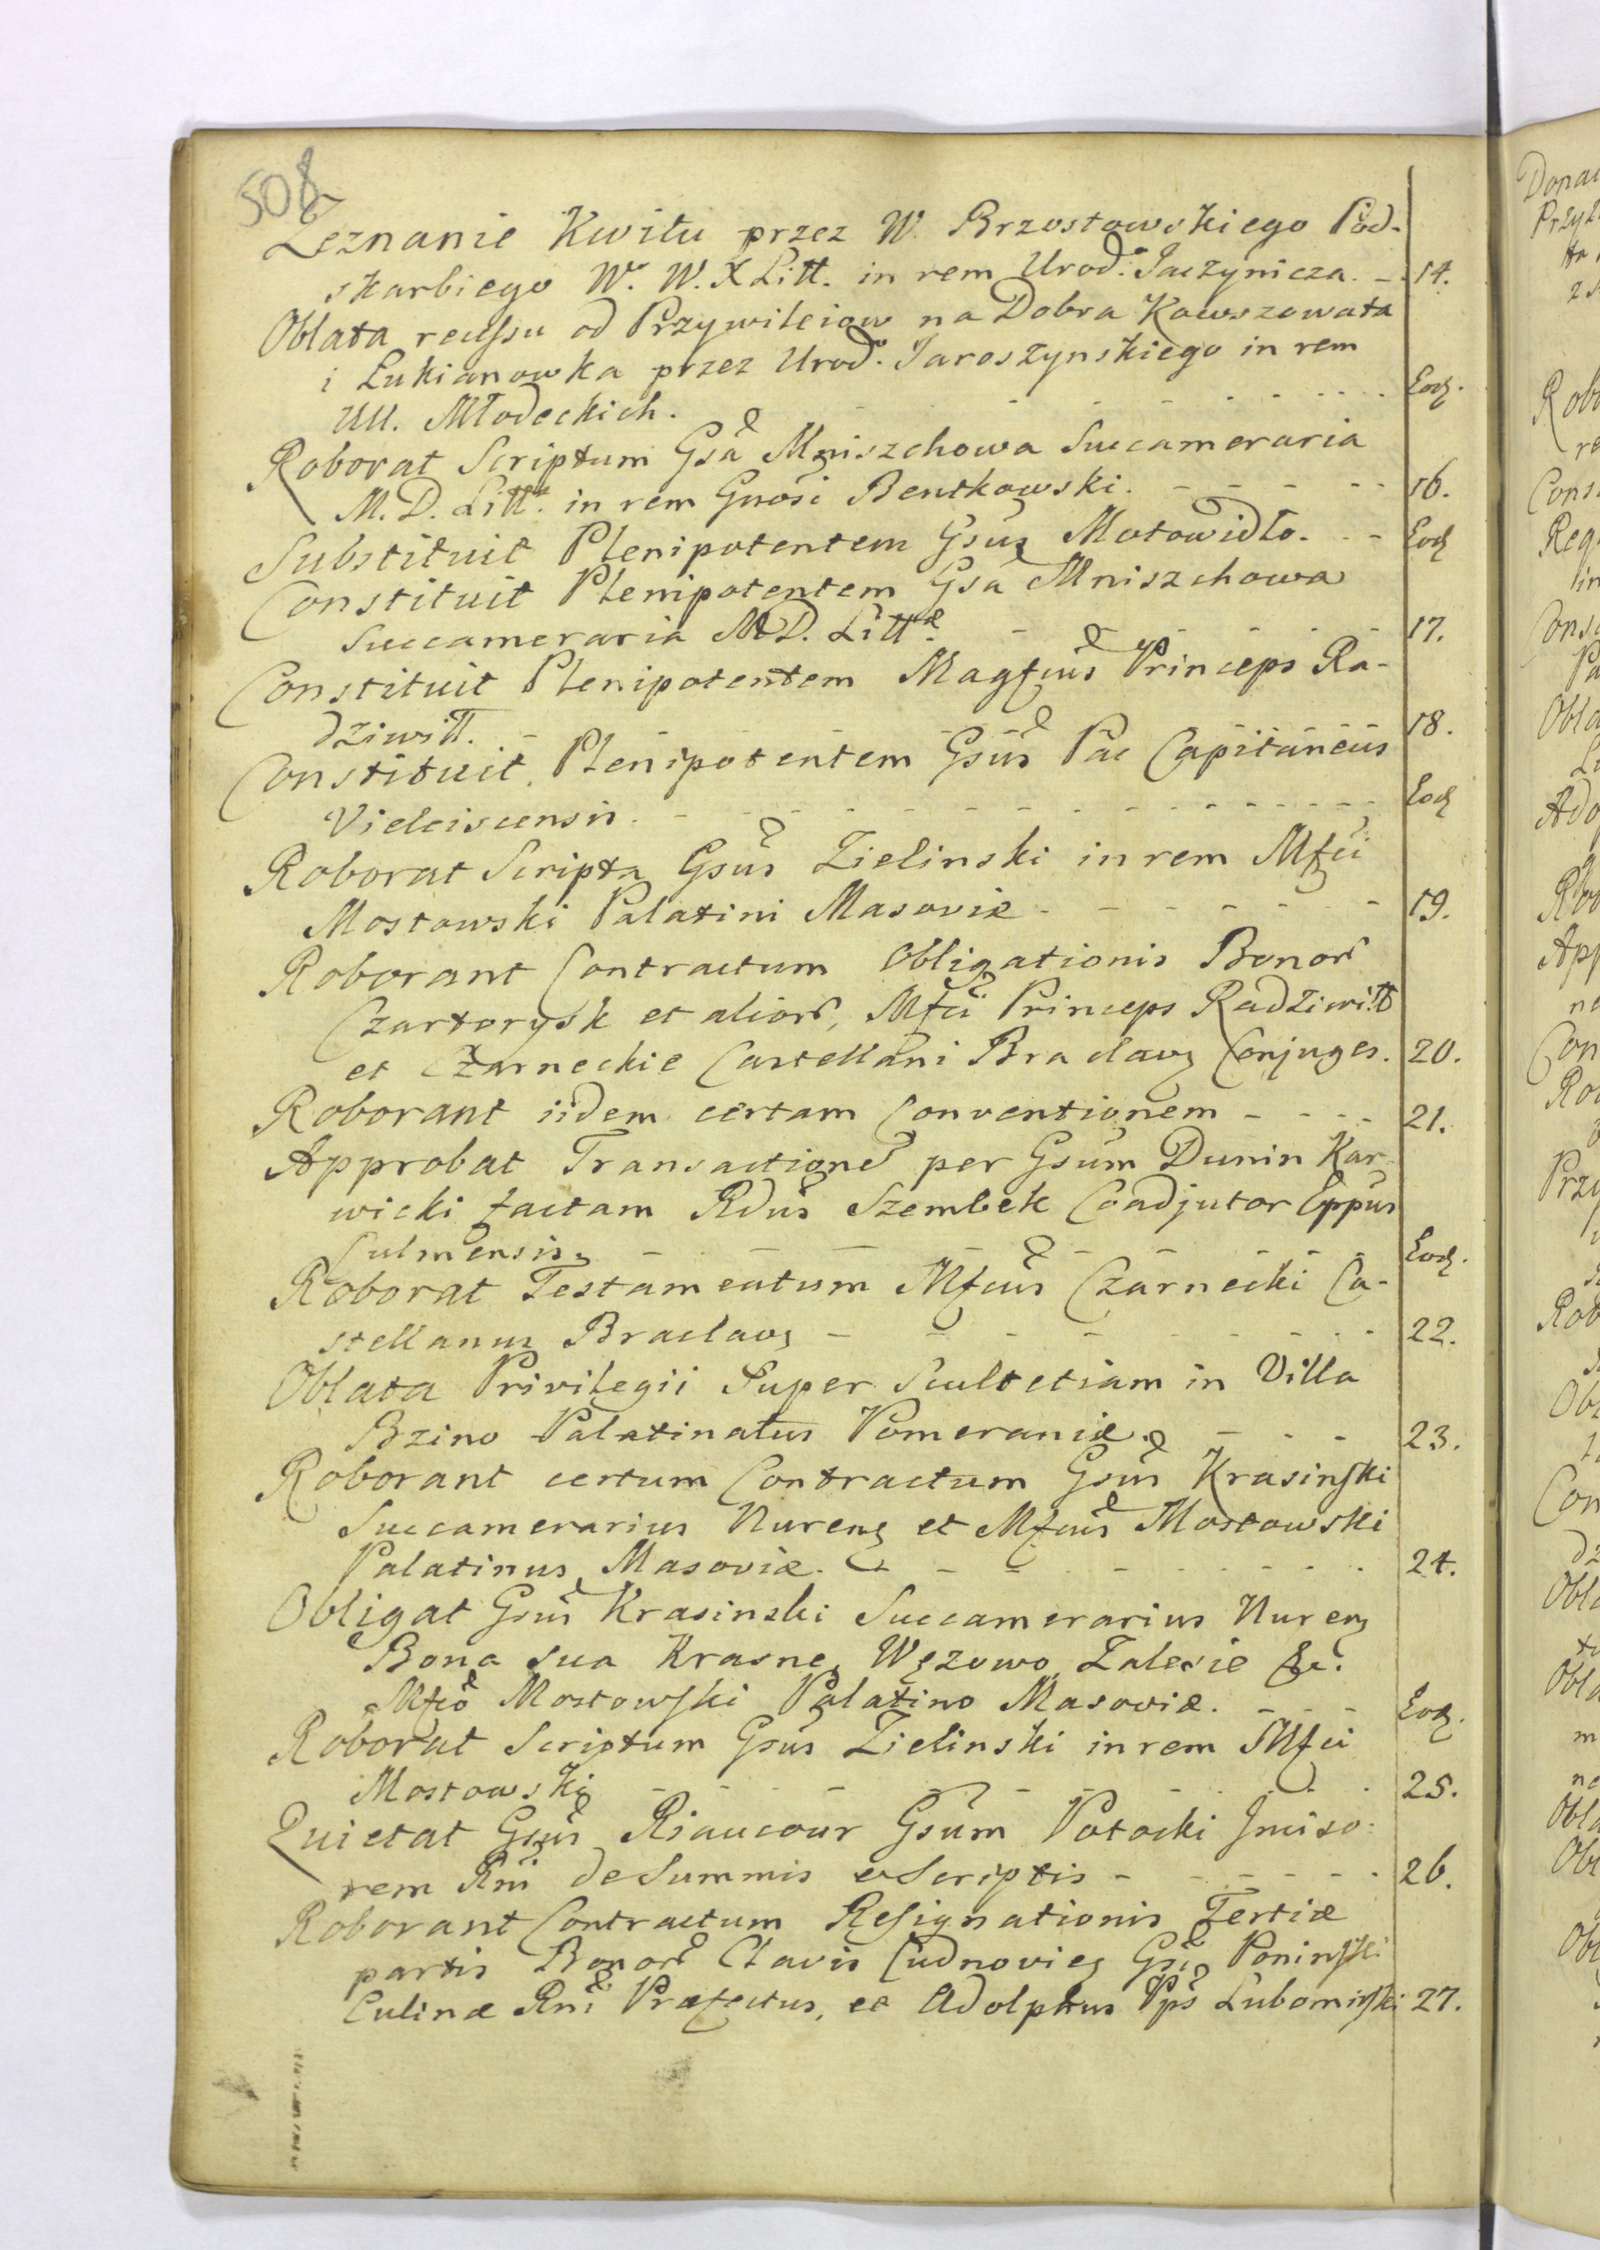 508
Zeznanie Kwitu przez W. Brzostowskiego Pod-
skarbiego W. W. X Litt. in rem Urod. Jaczynicza. - 14.
Oblata recessu od Przywileiow na Dobra Kowszowata
i Łukianowka przez Urod. Jaroszynskiego in rem
UU. Młodeckich. Eod.
Roborat Scriptum Gsa Mniszchowa Succameraria
M. D. Littæ. in rem Gnosi Bentkowski. - - - 16.
Substituit Plenipotentem Gsus Motowidło. - - Eod
Constituit Plenipotentem Gsa Mniszchowa
Succameraria M.D. Littæ. - - - 17.
Constituit Plenipotentem Magfcus Princeps Ra-
dziwiłł. - - - 18.
Constituit Plenipotentem Gsus Pac Capitaneus
Vieleiscensis. - - - Eod
Roborat Scripta Gsus Zielinski in rem Mfci
Mostowski Palatini Masoviæ - - - 19.
Roborant Contractum Obligationis Bonor
Czartorysk et alior, Mfci Princeps Radziwiłł
et Czarneckie Castellani Braclav Conjuges. 20.
Roborant iidem certam Conventionem - - - 21.
Approbat Transactione per Gsum Dunin Kar-
wicki factam Rdus Szembek Coadjutor Eppus
Culmensis - - - Eod.
Roborat Testamentum Mfcus Czarnecki Ca-
stellanus Braclav - - - 22.
Oblata Privilegii Super Scultetiam in Villa
Bzino Palatinatus Pomeraniæ. - - - 23.
Roborant certum Contractum Gsus Krasinski
Succamerarius Nurens et Mfcus Mostowski
Palatinus Masoviæ. - - - 24.
Obligat Gsus Krasinski Succamerarius Nurens
Bona sua Krasne, Węzowo, Zalesie &c.
Mfco Mostowski Palatino Masoviæ. - - - Eod.
Roborat Scriptum Gsus Zielinski in rem Mfci
Mostowski - - - 25.
Quietat Gsus Riaucour Gsum Potocki Inciso-
rem Rni de Summis et Scriptis - - - 26.
Roborant Contractum Resignationis Tertiæ
partis Bonor Clavis Cudnovien Gsus Poninski
Culinæ Rni Præfectus, et Adolphus Pps Lubomirski 27.